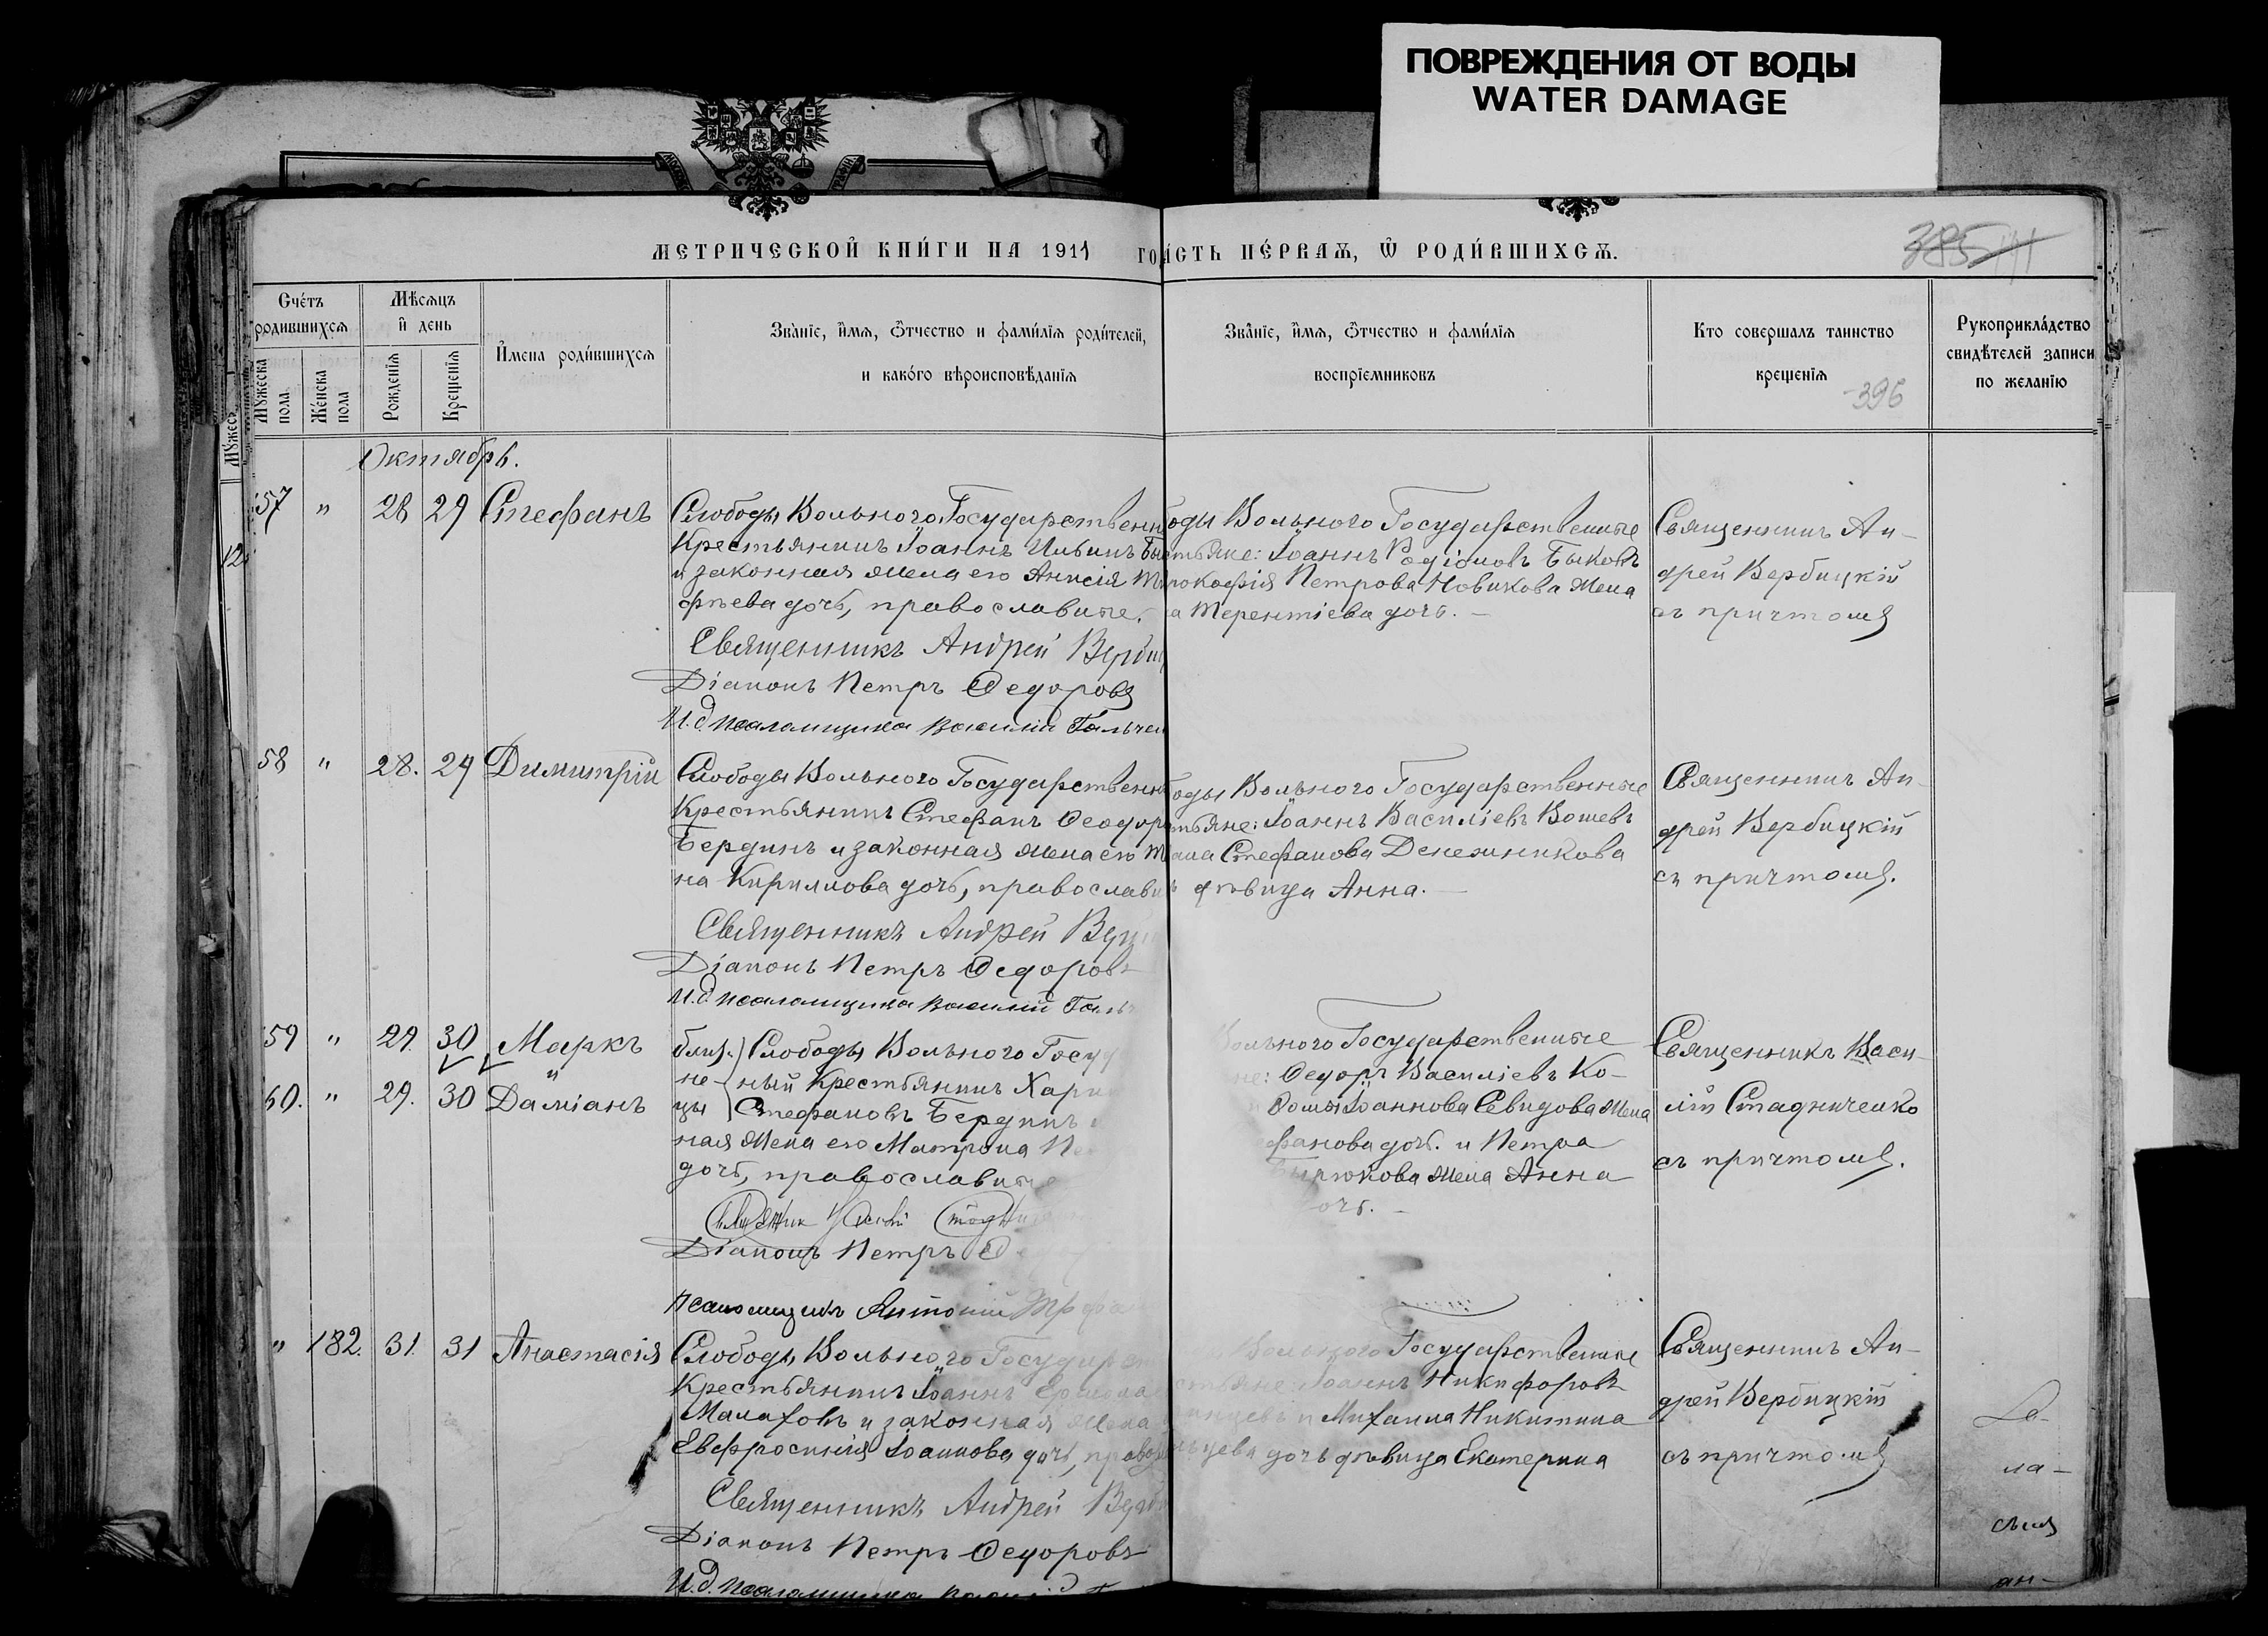 ПОВРЕЖДЕНИЯ ОТ ВОДЫ
WATER DAMAGE
МЕТРИЧЕСКОЙ КНИГИ НА 1911 ГО
АСТЬ ПЕРВАЯ, Ѡ РОДИВШИХСЯ.
385
396
Счетъ родившихся
Мужеска пола.
Женска пола
Мѣсяцъ и день
Рожденія
Крещенія
Имена родившихся
Званіе, имя, ѿчество и фамилія родителей,
и какого вѣроисповѣданія
Званіе, имя, ѿчество и фамилія
воспріемниковъ
Кто совершалъ таинство
крещенія
Рукоприкладство
свидѣтелей записи
по желанію
Октябрь.
57 " 28 29 Стефанъ
Слободы Вольного Государственн
Крестьянинъ Іоаннъ Ильинъ Бы
и законная жена его Анисія
фѣева дочь, православные.
Священникъ Андрей Верби
Діаконъ Петръ Ѳедоровъ
И.д. псаломщика Василій Гальчен
оды Вольного Государственные
стьяне: Іоаннъ Родіоновъ Быковъ
рокофія Петрова Новикова жена
а Терентіева дочь. —
Священникъ Ан-
дрей Вербицкій
съ причтомъ
58 " 28. 29 Димитрій
Слободы Вольного Государственн
Крестьянинъ Стефанъ Ѳеодор
Бердинъ и законная жена его
на Кириллова дочь, православн
Священникъ Андрей Вер
Діаконъ Петръ Ѳедоровъ
И.д. псаломщика Василій Галь
оды Вольного Государственные
тьяне: Іоаннъ Василіевъ Вошевъ
Стефанова Денежникова
дѣвица Анна. —
Священникъ Ан-
дрей Вербицкій
съ причтомъ.
59 " 29. 30 Маркъ
60. " 29. 30 Даміанъ
близ-
не-
цы
Слободы Вольного Госуд
ный Крестьянинъ Хари
Стефановъ Бердинъ
ная жена его Матрона
дочь, православные
Діаконъ Петръ Ѳ
Псаломщикъ Антоній
Вольного Государственные
не: Ѳедоръ Василіевъ Ко-
Іоаннова Севидова жена
фанова дочь. и Петра
Бирюкова жена Анна
дочь. —
Священникъ Васи-
лій Стадниченко
съ причтомъ.
" 182. 31. 31 Анастасія
Слободы Вольного Государствен
Крестьянинъ Іоаннъ
Малаховъ и законная жена
Евфросинія Іоаннова дочь, правос
Священникъ Андрей Верб
Діаконъ Петръ Ѳедоровъ
И.д. псаломщика
Вольного Государственные
стьяне: Іоаннъ Никифоровъ
и Михаила Никитина
цева дочь дѣвица Екатерина
Священникъ Ан-
дрей Вербицкій
съ причтомъ